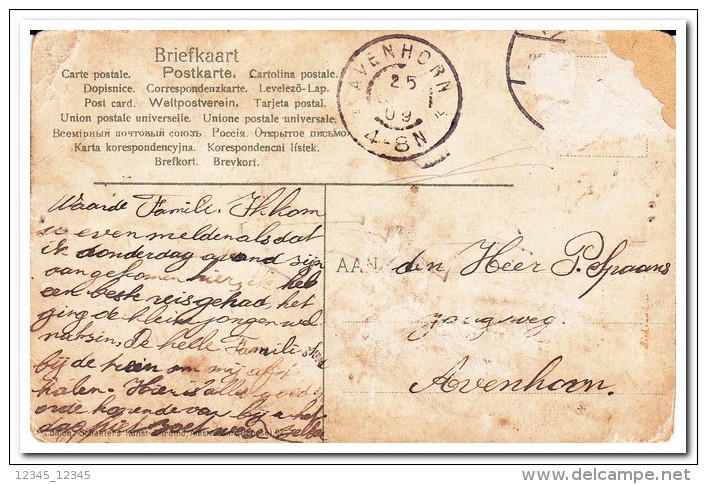 Briefkaart
Carte postale. Postkarte. Cartolina postale.
Dopisnice. Correspondenzkarte. Levelező-Lap.
Post card. Weltpostverein. Tarjeta postal.
Union postale universelle. Unione postale universale.
Всемірный почтовый союзъ. Россія. Открытое письмо.
Karta korespondencyjna. Korespondencni lístek.
Brefkort. Brevkort.
AVENHORN
25
09
4-8N
Waarde Famili. Ik kom
u even melden als dat
ik donderdag avond zijn
aangekomen hier, ik heb
een best reis gehad, het
ging de klein jongen wel
na zin, De helle Famili
bij de trein om mij af
halen. Hier is alles goed
orde
AAN den Heer P. Spaans
zougweg.
Avenhorn.
12345_12345
delcampe.net